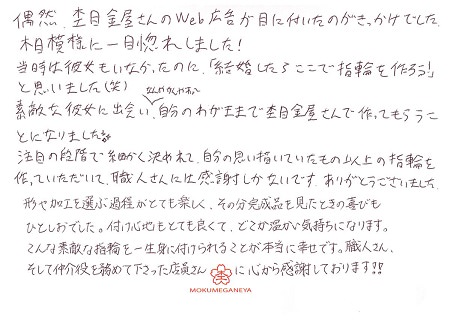 偶然、杢目金屋さんのWeb広告が目に付いたのがきっかけでした。
木目模様に一目惚れしました!
当時は彼女もいなかったのに、「結婚したらここで指輪を作ろう!」
と思いました(笑)
なんやかんやあって
素敵な彼女に出会い、自分のわがままで杢目金屋さんで作ってもらうこ
とになりました。
注目の段階で細かく決めれて、自分の思い描いていたもの以上の指輪を
作っていただいて、職人さんには感謝しかないです。ありがとうございました。
形や加工を選ぶ過程がとても楽しく、その分完成品を見たときの喜びも
ひとしおでした。付け心地もとても良くて、どこか温かい気持ちになります。
こんな素敵な指輪を一生身に付けられることが本当に幸せです。職人さん、
そして仲介役を務めて下さった店員さんに心から感謝しております!!
MOKUMEGANEYA